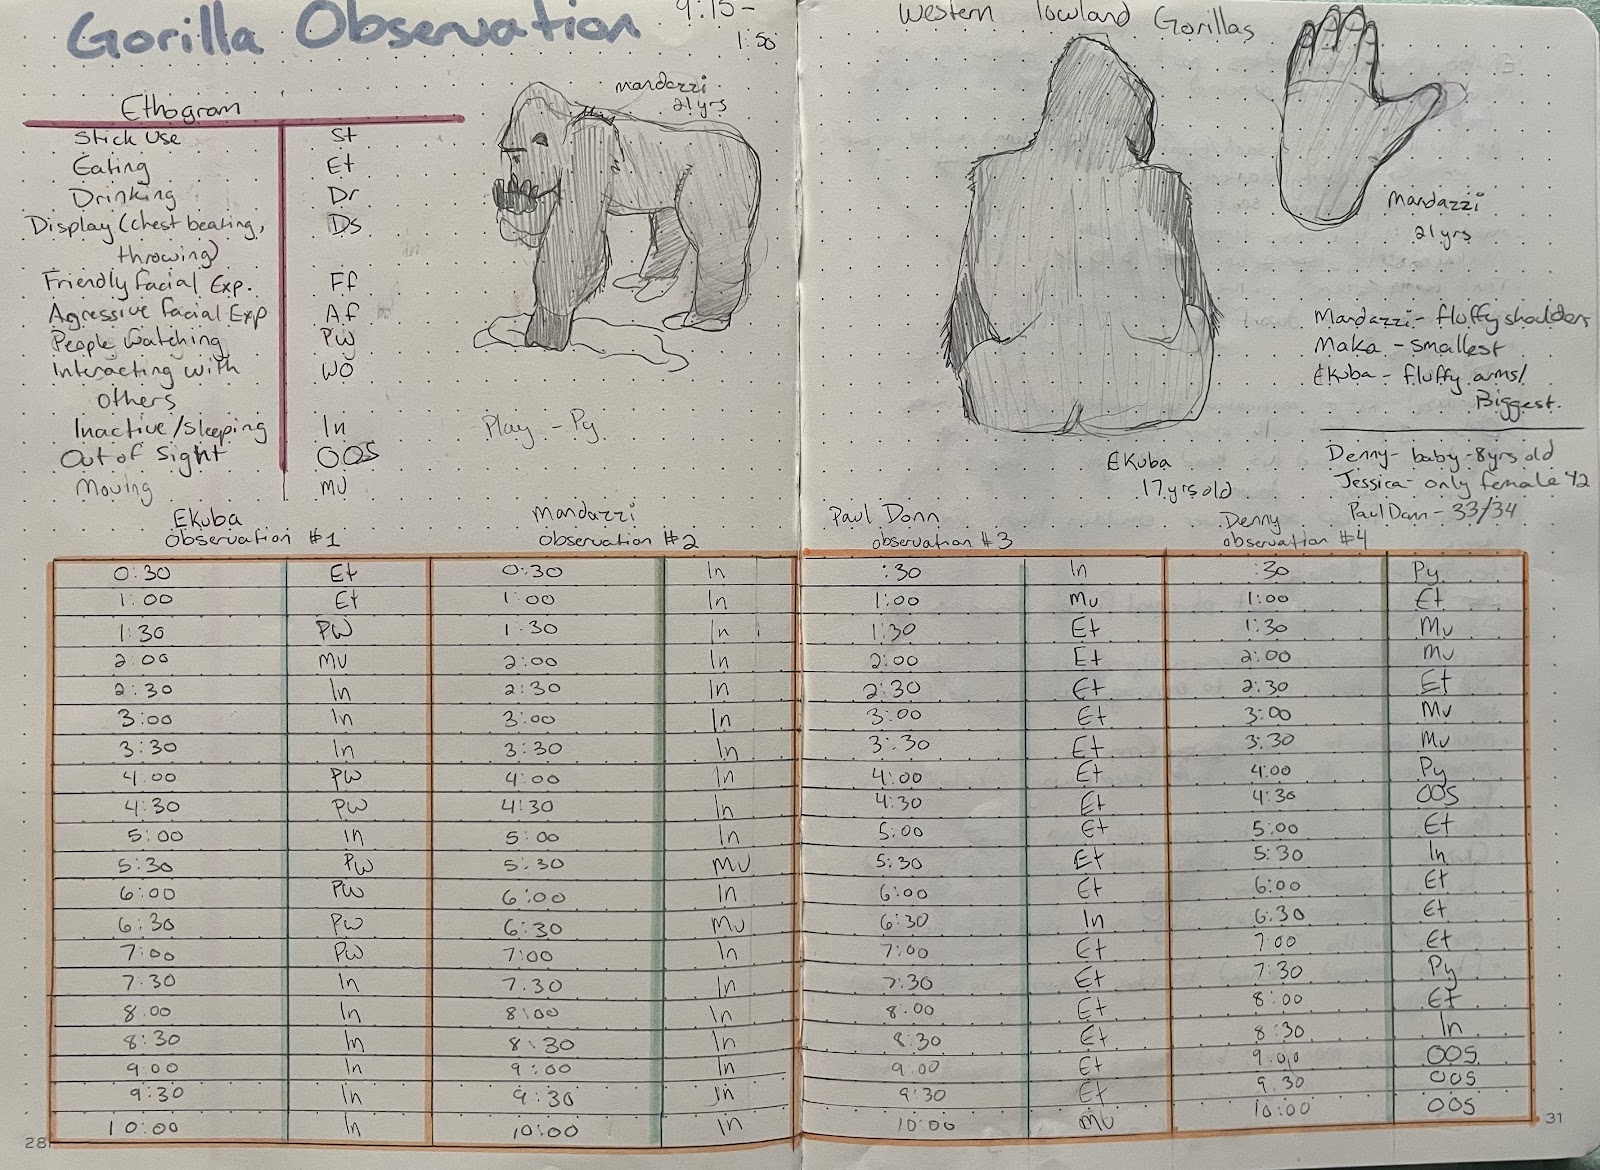 Gorilla Observation
9:15-
1:50
Ethogram
Stick Use St
Eating Et
Drinking Dr
Display (chest beating, Ds
throwing)
Friendly facial Exp. Ff
Agressive facial Exp Af
People Watching PW
Interacting with WO
others
Inactive/Sleeping In
Out of Sight OOS
Moving MV
mandazzi
21yrs
Play - Py
Western lowland Gorillas
Mandazzi
21yrs
Ekuba
17yrs old
Mandazzi - fluffy shoulders
Maka - smallest
Ekuba - fluffy arms/
Biggest.
Denny - baby - 8yrs old
Jessica - only female 42
Paul Donn - 33/34
Ekuba
observation #1
Mandazzi
observation #2
Paul Donn
observation #3
Denny
observation #4
0:30 Et 0:30 In :30 In :30 Py
1:00 Et 1:00 In 1:00 Mv 1:00 Et
1:30 PW 1:30 In 1:30 Et 1:30 Mv
2:00 MV 2:00 In 2:00 Et 2:00 Mv
2:30 In 2:30 In 2:30 Et 2:30 Et
3:00 In 3:00 In 3:00 Et 3:00 Mv
3:30 In 3:30 In 3:30 Et 3:30 Mv
4:00 PW 4:00 In 4:00 Et 4:00 Py
4:30 PW 4:30 In 4:30 Et 4:30 OOS
5:00 In 5:00 In 5:00 Et 5:00 Et
5:30 PW 5:30 MV 5:30 Et 5:30 In
6:00 PW 6:00 In 6:00 Et 6:00 Et
6:30 PW 6:30 MV 6:30 In 6:30 Et
7:00 PW 7:00 In 7:00 Et 7:00 Et
7:30 In 7:30 In 7:30 Et 7:30 Py
8:00 In 8:00 In 8:00 Et 8:00 Et
8:30 In 8:30 In 8:30 Et 8:30 In
9:00 In 9:00 In 9:00 Et 9:00 OOS
9:30 In 9:30 In 9:30 Et 9:30 OOS
10:00 In 10:00 In 10:00 MV 10:00 OOS
28
31